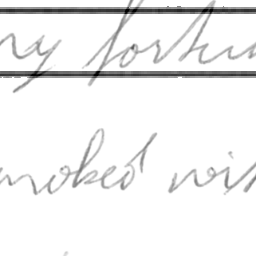 ny fortun
moked wit